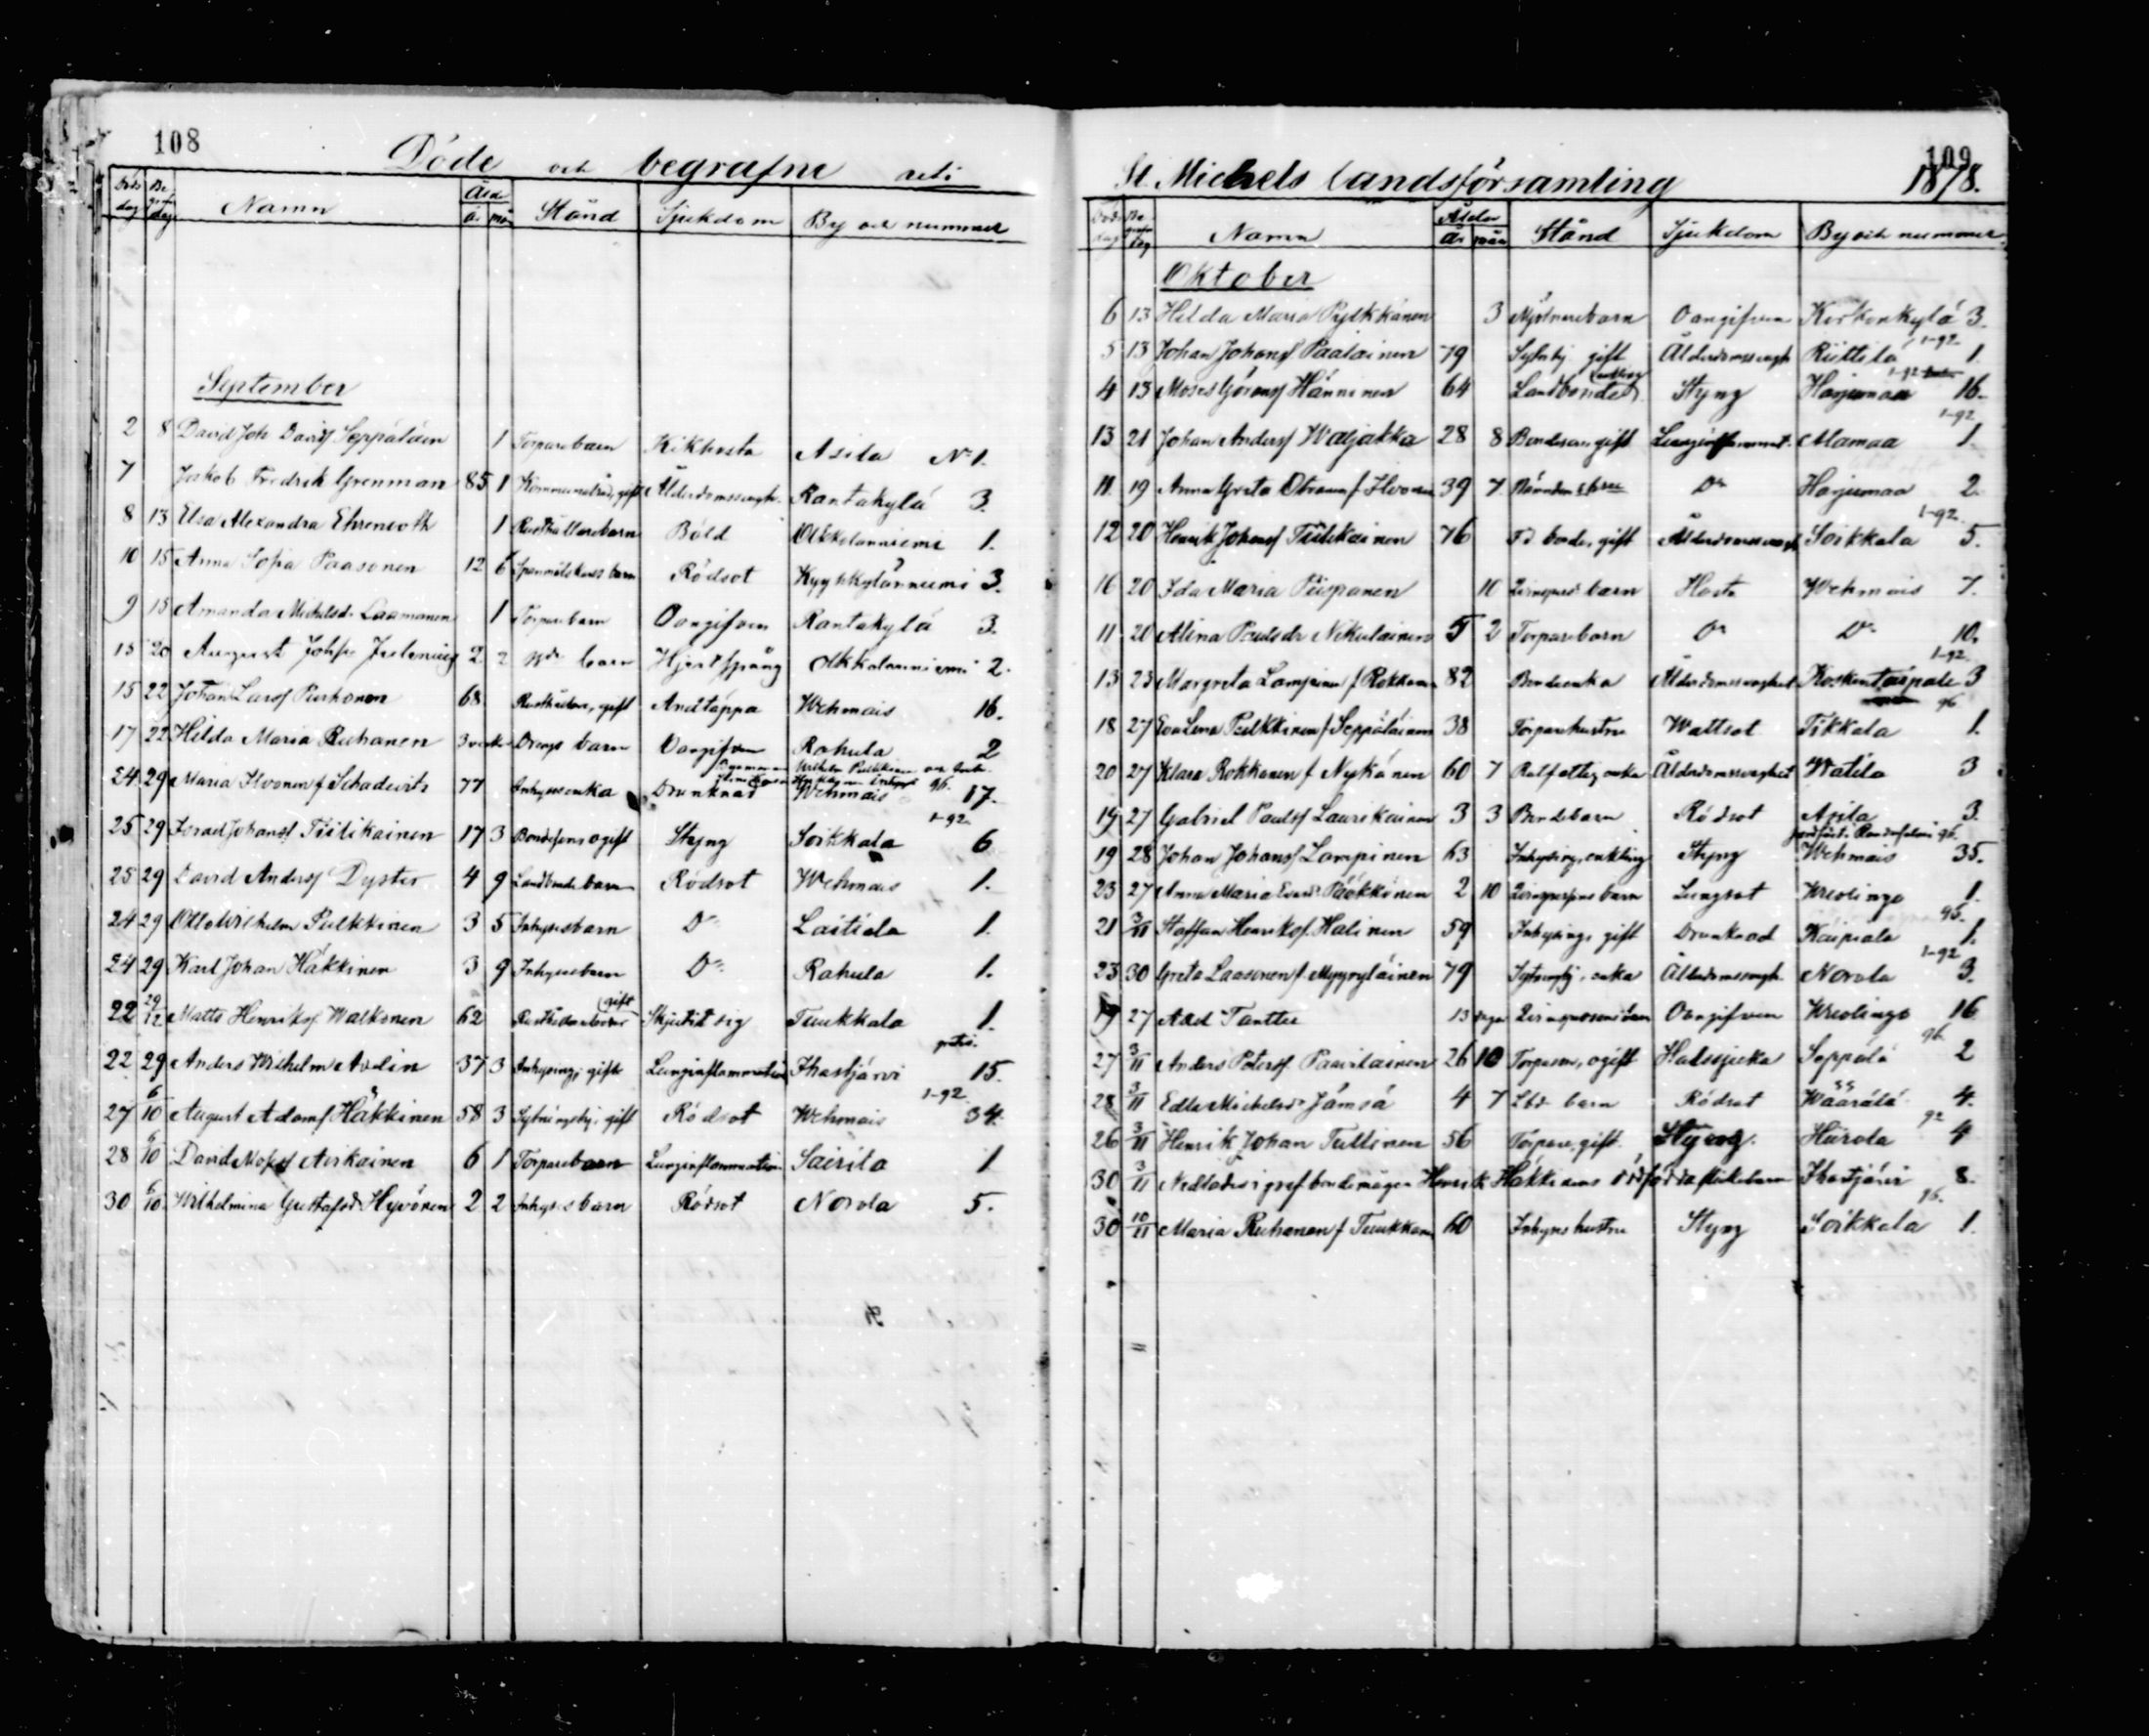 108
Döde och begrafne uti
Döds dag Be graf dag Namn Ålder år mån Stånd Sjukdom By och nummer
September
2 8 David Joh Davidsf Seppäläinen 1 Torparebarn Kikhosta Asila No 1.
7 Jakob Fredrik Grenman 85 1 gift Ålderdomssvagh. Rantakylä 3.
8 13 Elsa Alexandra Ehrenroth 1 Rusthållarebarn Böld Olkkolanniemi 1.
10 15 Anna Sofia Paasonen 12 6 barn Rödsot 3.
9 15 Amanda Michelsdr Laamanen 1 Torparebarn Oangifven Rantakylä 3.
15 20 August Johsf 2 2 barn Hjertsprång Olkkolanniemi 2.
15 22 Johan Larsf 68 gift Andtäppa Wehmais 16.
17 22 Hilda Maria Ruhanen 3 veckor Drengs barn Oangifven Rahula 2
24 29 Maria Ilvonen f 77 Inhysesenka Drunknad Wehmais 96. 17.
1-92.
25 29 Israel Johansf Tiilikainen 17 3 Bondeson ogift Styng Soikkala 6
25 29 David Andersf Dyster 4 9 Landbondebarn Rödsot Wehmais 1.
24 29 Otto Wilhelm Pulkkinen 3 5 Inhysesbarn Do Laitiala 1.
24 29 Karl Johan Häkkinen 3 9 Inhysesbarn Do Rahula 1.
22 29/12 Matts Henriksf Walkonen 62 gift Skjutit sig Tuukkala 1.
22 29 Anders Wilhelm Avelin 37 3 Inhysing, gift Lunginflammation Ihastjärvi 15.
1-92
27 6/10 August Adamsf Häkkinen 58 3 gift Rödsot Wehmais 34.
28 6/10 David Airikainen 6 1 Torparebarn Lunginflammation Sairila 1
30 6/10 Wilhelmina Gustafsdr Hyvönen 2 2 Inhysesbarn Rödsot Norola 5.
109
St. Michels landsförsamling 1878.
Döds dag Be grafn dag Namn Ålder år mån Stånd Sjukdom By och nummer
Oktober
6 13 Hilda Maria Pylkkänen 3 Oangifven Korkonkylä 3.
1-92
5 13 Johan Johansf Paalainen 79 gift Ålderdomssvagh Riittilä 1.
1-92
4 13 Moses Göransf Hänninen 64 Landbonde Styng Harjumaa 16.
1-92
13 21 Johan Andersf Waljakka 28 8 Bondeson gift Lunginflammat. Alamaa 1.
11 19 Anna Greta f. Ilvonen 39 7 Do Harjumaa 2.
1-92.
12 20 Henrik Johansf Tiilikainen 76 Fd bonde, gift Ålderdomssvagh Soikkala 5.
16 20 Ida Maria Piispanen 10 barn Hosta Wehmais 7.
11 20 Alina Paulsdr Nikulainen 5 2 Torparbarn Do Do 10.
1-92.
13 23 Margreta Lampinen f Rokkanen 82 Bondeenka Ålderdomssvaghet Koskentaipale 3
96
18 27 Eva Lena Pulkkinen f Seppäläinen 38 Torparehustru Wattsot Tikkala 1.
20 27 Klara Rokkanen f Nykänen 60 7 Rotfattig enka Ålderdomssvaghet Watila 3
19 27 Gabriel Paulsf Laurikainen 3 3 Bondebarn Rödsot Asila 3.
96.
19 28 Johan Johansf Lampinen 63 Inhysing, enkling Styng Wehmais 35.
23 27 Anna Maria Pääkkönen 2 10 barn Lungsot Wreolinge 1.
95.
21 3/11 Staffan Henriksf. Halinen 59 Inhysing, gift Drunknad Kaipiala 1.
1-92
23 30 Greta Laasonen f. Myyryläinen 79 enka Ålderdomssvagh. Norola 3.
19 27 Axel Tanttu 13 dagar Oangifven Wreolinge 16
96
27 3/11 Anders Petersf Pauilainen 26 10 Torpareson, ogift Halssjuka Seppälä 2
28 3/11 Edla Michelsdr Jämsä 4 7 Lbd. barn Rödsot Wäärälä 4.
92
26 3/11 Henrik Johan Tullinen 56 Torpare, gift. Styng. Hiirola 4
30 3/11 Nedlades i graf bondemågen Henrik Häkkinens dödfödda flickebarn Ihastjärvi 8.
96.
30 10/11 Maria Ruhanen f Tuukkanen 60 Inhyses hustru Styng Soikkala 1.